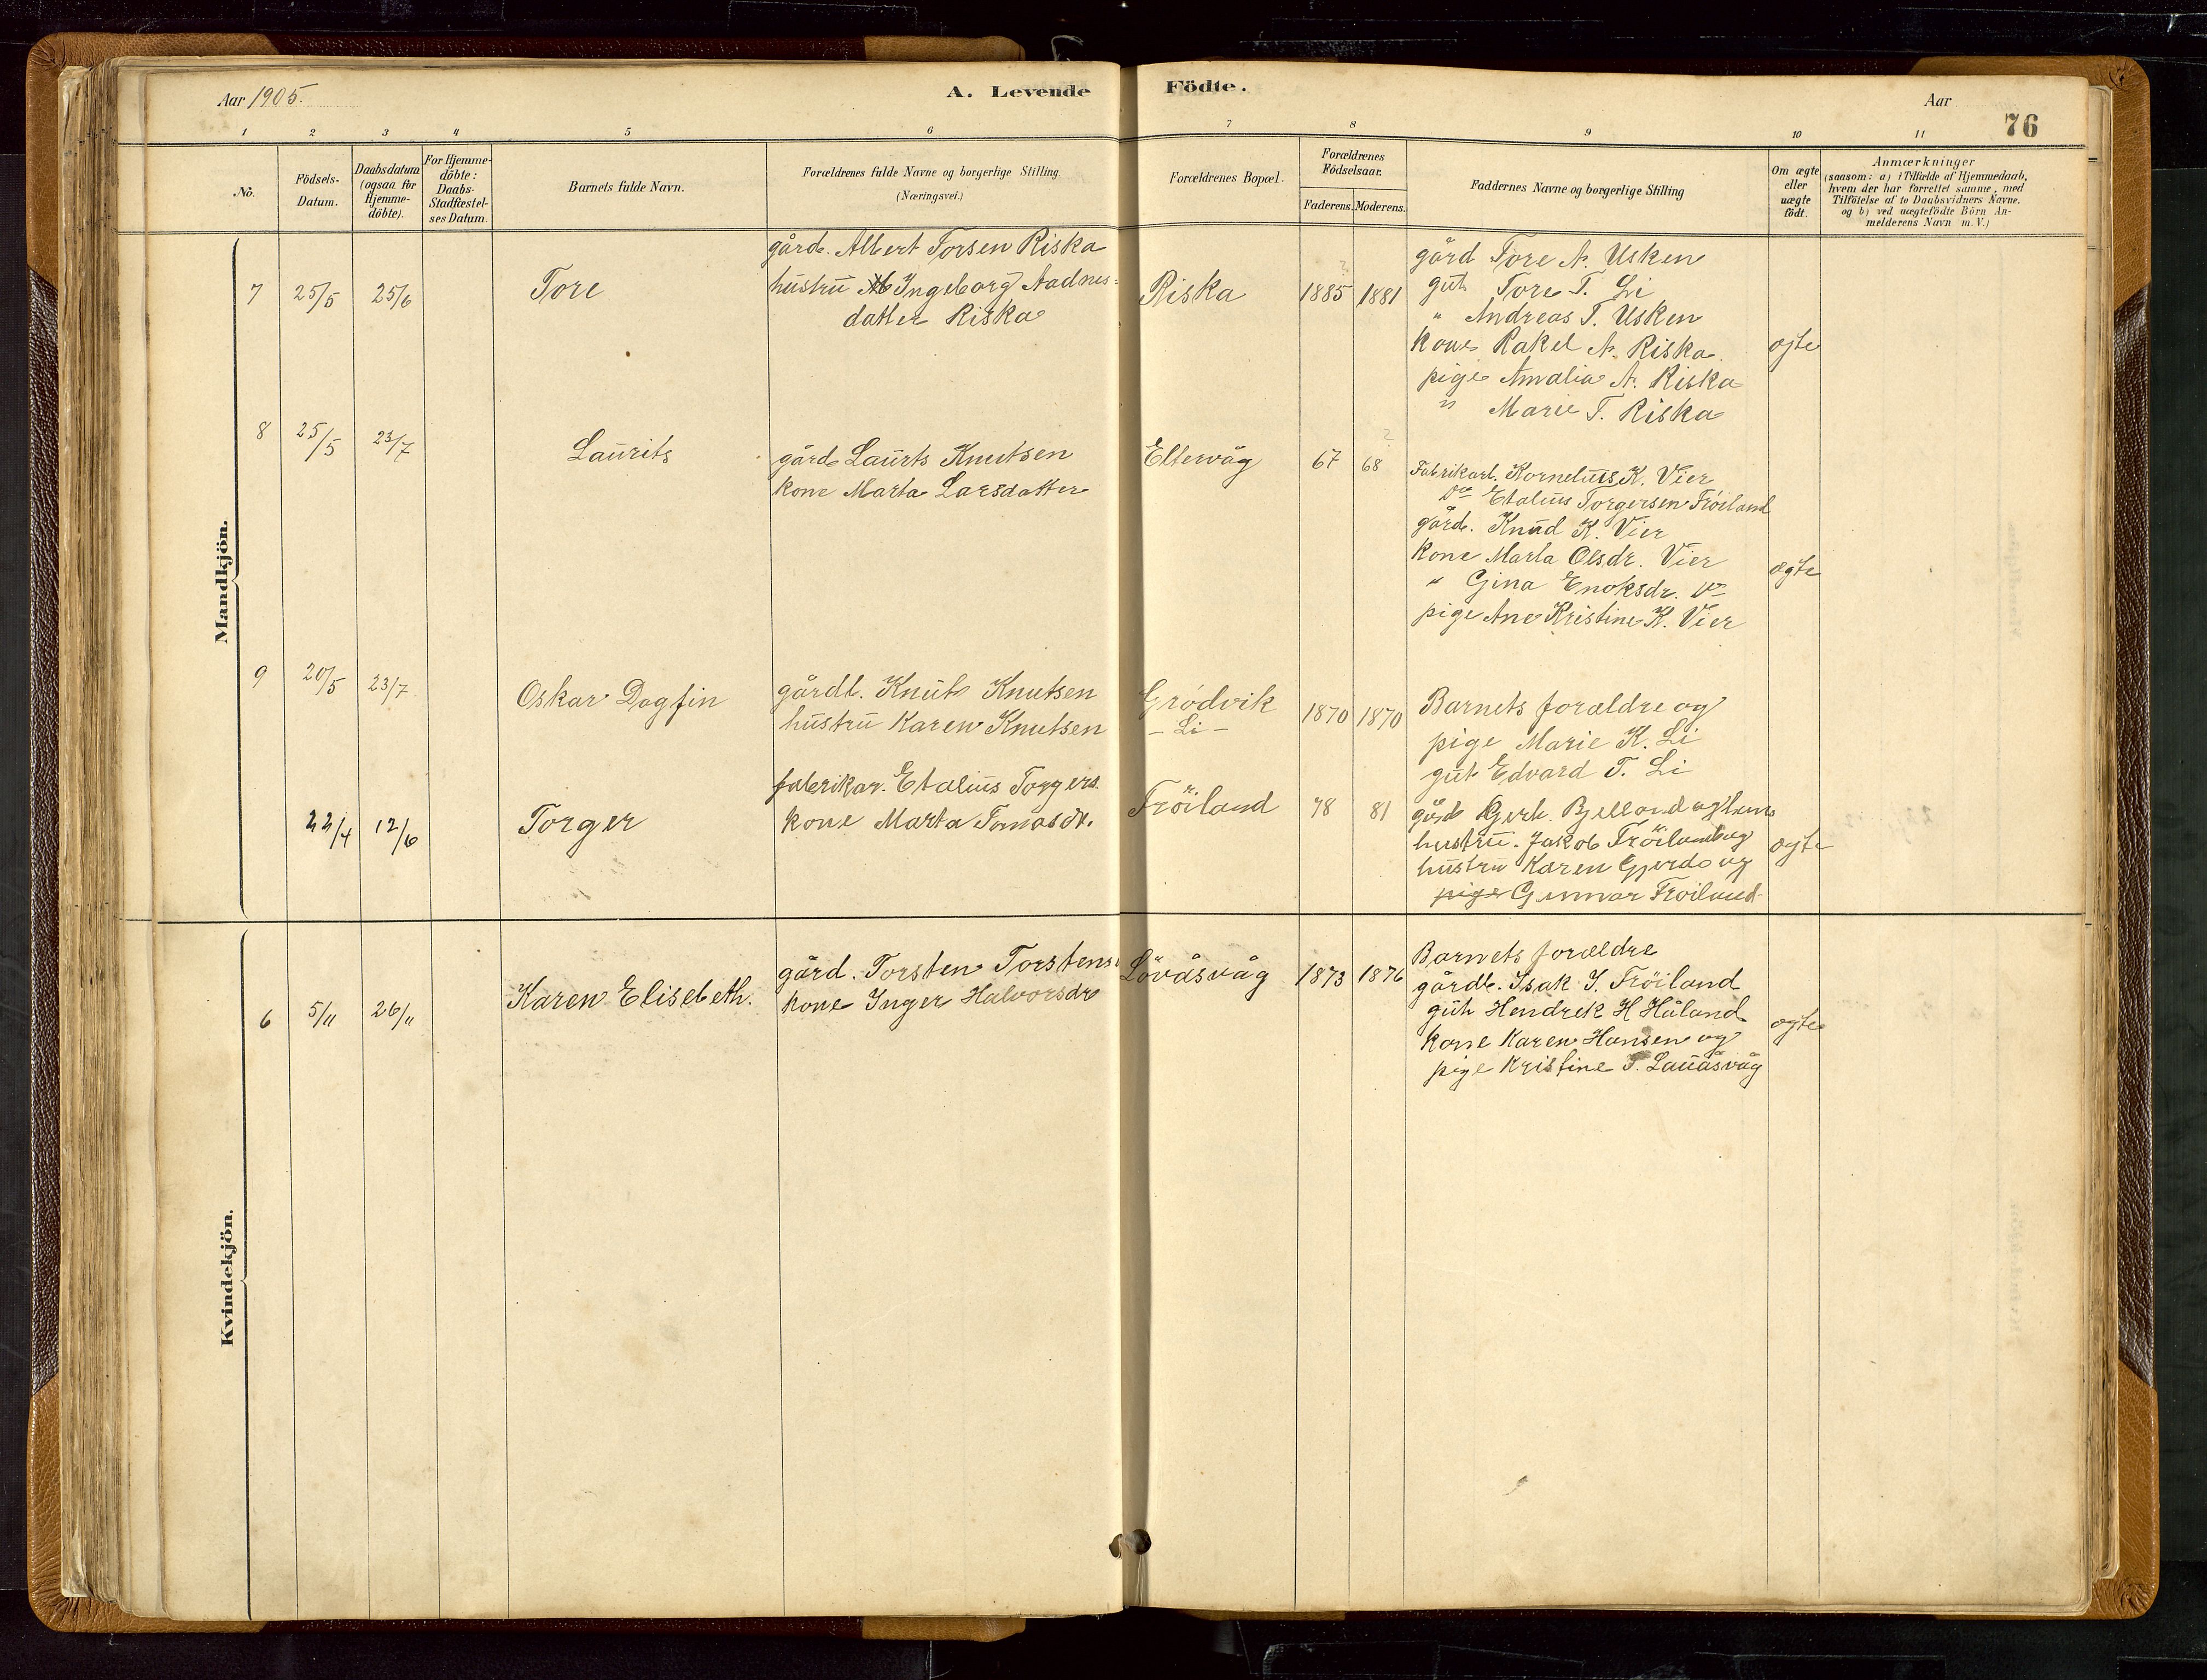 Aar 1905.
A. Levende Födte.
Aar
76
1 2 3 4 5 6 7 8 9 10 11
No.
Födsels-
Datum.
Daabsdatum
(ogsaa for
Hjemme-
döbte).
For Hjemme-
döbte:
Daabs-
Stadfæstel-
ses Datum.
Barnets fulde Navn.
Forældrenes fulde Navne og borgerlige Stilling
(Næringsvei.)
Forældrenes Bopæl.
Forældrenes
Födselsaar.
Faderens. Moderens.
Faddernes Navne og borgerlige Stilling
Om ægte
eller
uægte
födt.
Anmærkninger
(saasom: a) i Tilfælde af Hjemmedaab,
hvem der har forrettet samme, med
Tilföielse af to Daabsvidners Navne.
og b) ved uægtefödte Börn An-
melderens Navn m. V.)
Mandkjön.
7 25/5 25/6 Tore
gård. Albert Torsen Riska
hustru Ingeborg Aadnes-
datter Riska
Riska 1885 1881
gård Tore A. Usken
gut Tore T. Li
" Andreas T. Usken
kone Rakel A. Riska
pige Amalia A. Riska
" Marie T. Riska
ægte
8 25/5 23/7 Laurits
gård Laurts Knutsen
kone Marta Larsdatter
Eltervåg 67 68
Fabrikarb. Kornelius K. Vier
Do Etalius Torgersen Fröiland
gård. Knud K. Vier
kone Marta Olsdr. Vier
" Gina Enoksdr. Do
pige Ane Kristine K. Vier
ægte
9 20/5 23/7 Oskar Dagfin
gårdb. Knut Knutsen
hustru Karen Knutsen
Grödvik
- Li -
1870 1870
Barnets forældre og
pige Marie K. Li
gut Edvard T. Li
22/4 12/6 Torger
fabrikar. Etalius Torgers.
kone Marta Tomasdr.
Fröiland 78 81
gård Bjelland og
hustru. Jakob Fröiland og
hustru Karen Gjerde og
pige Gunnar Fröiland
ægte
Kvindekjön.
6 5/11 26/11 Karen Elisebeth.
gård. Torsten Torstens
kone Inger Halvorsdr
Lövåsvåg 1873 1876
Barnets forældre
gårdb. Isak I. Fröiland
gut Hendrek H Håland
kone Karen Hansen og
pige Kristine T. Lauåsvåg
ægte